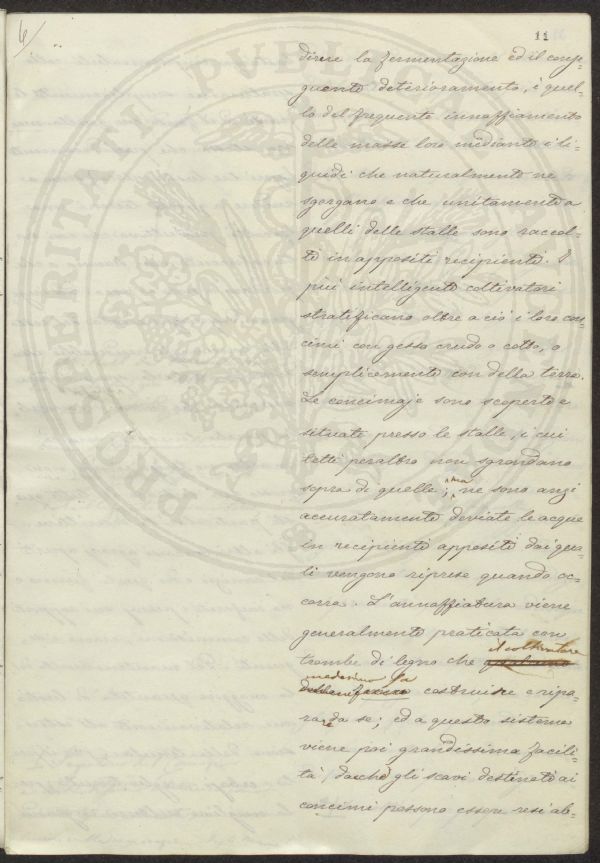 6/
11
dirne la fermentazione ed il conse-
guente deterioramento, è quel-
lo del frequente innaffiamento
delle masse loro mediante i li-
quidi che naturalmente ne
sgorgano e che unitamente a
quelli delle stalle sono raccol-
ti in appositi recipienti. I
più intelligenti coltivatori
stratificano oltre a ciò i loro con-
cimi con gesso crudo o cotto, o
semplicemente con della terra.
Le concimaje sono scoperte e
situate presso le stalle, i cui
tetti peraltro non sgrondano
sopra di quelle; ma ne sono anzi
accuratamente deviate le acque
in recipienti appositi dai qua-
li vengono riprese quando oc-
corra. L'annaffiatura viene
generalmente praticata con
il coltivatore
trombe di legno che
medesimo fa
costruire e ripa-
rare da se; ed a questo sistema
viene poi grandissima facili-
tà dacchè gli scavi destinati ai
concimi possono essere resi ab-
PROSPERITATI PVBLICAE